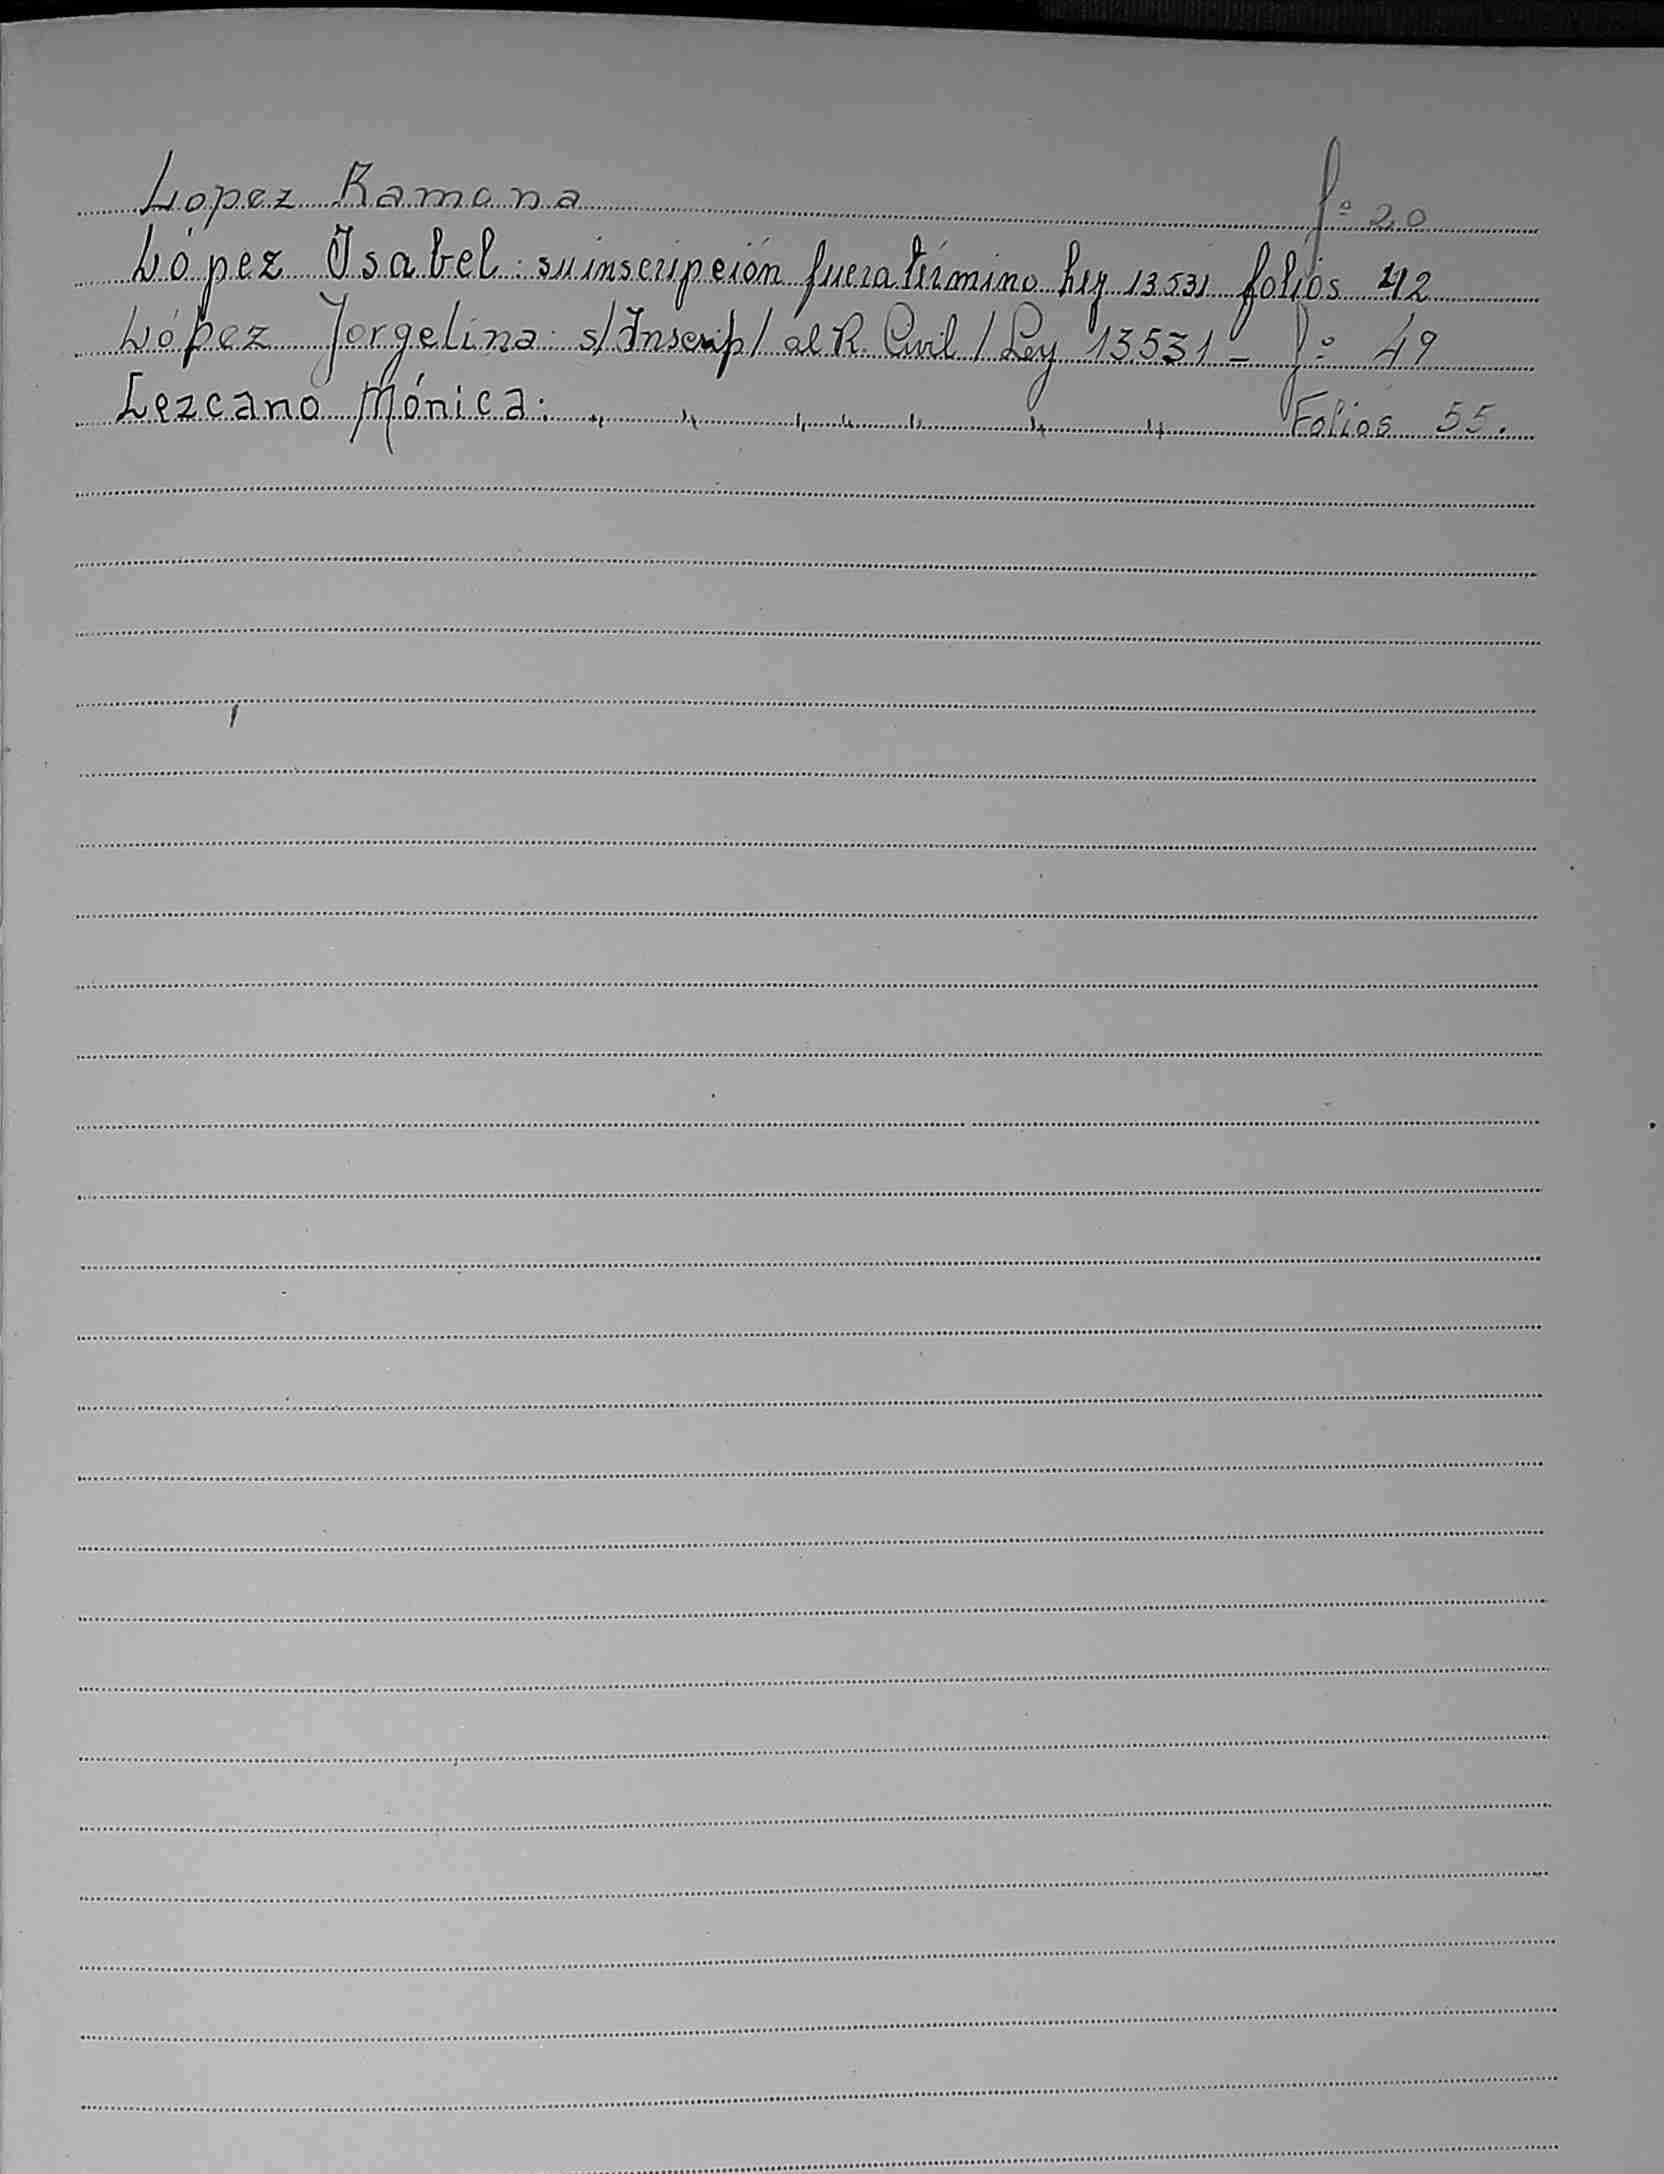 Lopez Ramona fº 20
López Isabel: su inscripción fuera término ley 13.531 folios 42
López Jorgelina: s/Inscrip/ al R. Civil / Ley 13531 - fº 49
Lezcano Mónica: ,, ,, ,, ,, ,, ,, ,, Folios 55.